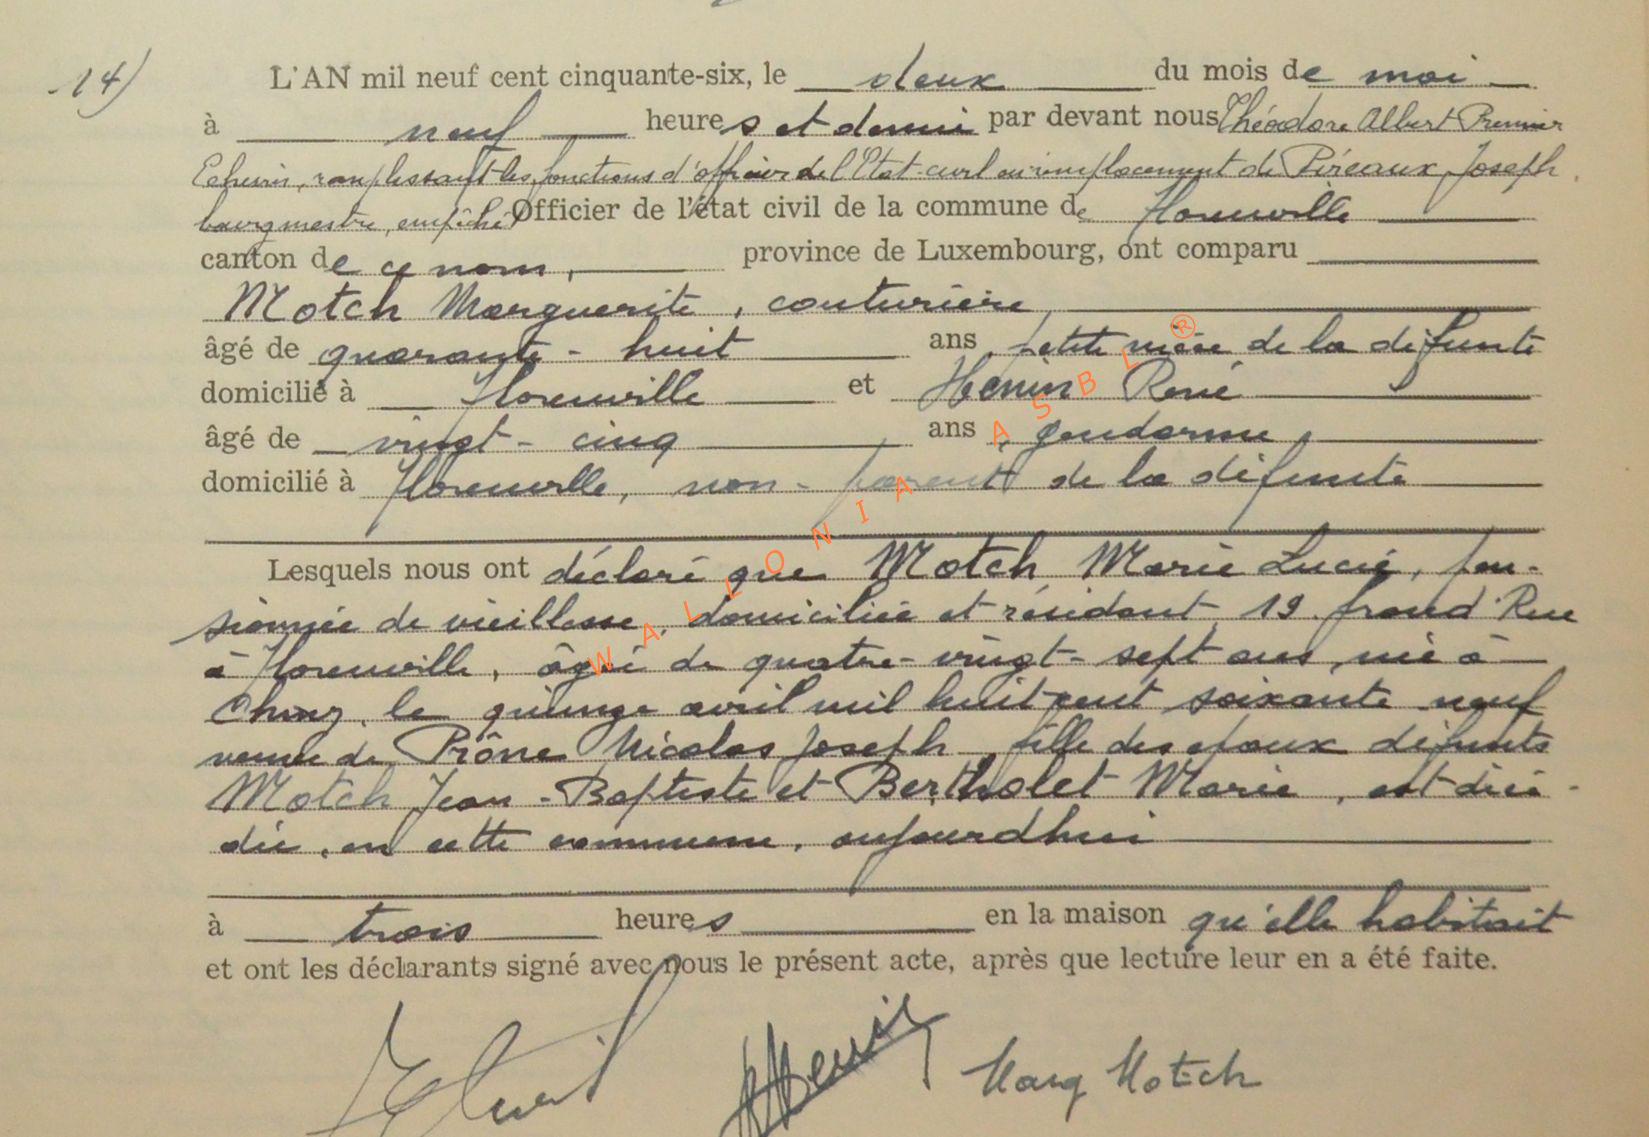 14)
L'AN mil neuf cent cinquante-six, le deux du mois de mai
à neuf heures et demie par devant nous Théodore Albert Premier
Echevin, remplissant les fonctions d'officier de l'Etat-civil en remplacement de Piréaux, Joseph
bourgmestre, empêché, Officier de l'état civil de la commune de Florenville
canton de ce nom, province de Luxembourg, ont comparu
Motch Marguerite, couturière
âgé de quarante-huit ans petite nièce de la défunte
domicilié à Florenville et Henin René
âgé de vingt-cinq ans, gendarme,
domicilié à Florenville, non-parent de la défunte
Lesquels nous ont déclaré que Motch Marie Lucie, pen-
sionnée de vieillesse, domiciliée et résidant, 19 Grand Rue
à Florenville, âgée de quatre-vingt-sept ans, née à
le quinze avril mil huit cent soixante neuf
veuve de Prône Nicolas Joseph, fille des époux défunts
Motch Jean-Baptiste et Bertholet Marie, est décé-
dée, en cette commune, aujourd'hui
à trois heures en la maison qu'elle habitait
et ont les déclarants signé avec nous le présent acte, après que lecture leur en a été faite.
Henin Marg Motch
WALLONIA ASBL ®